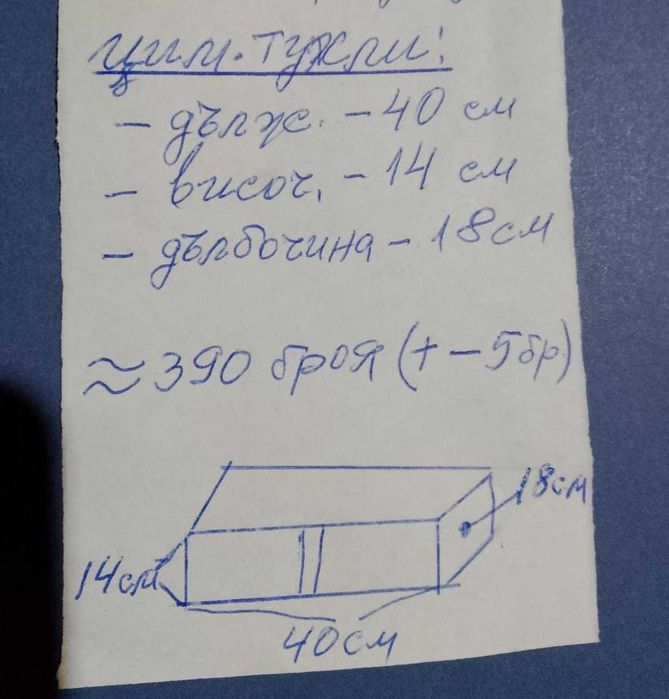 цим. тухли:
- дълж. - 40 см
- височ. - 14 см
- дълбочина - 18 см
≈ 390 броя (+ - 5 бр)
18 см
14 см
40 см